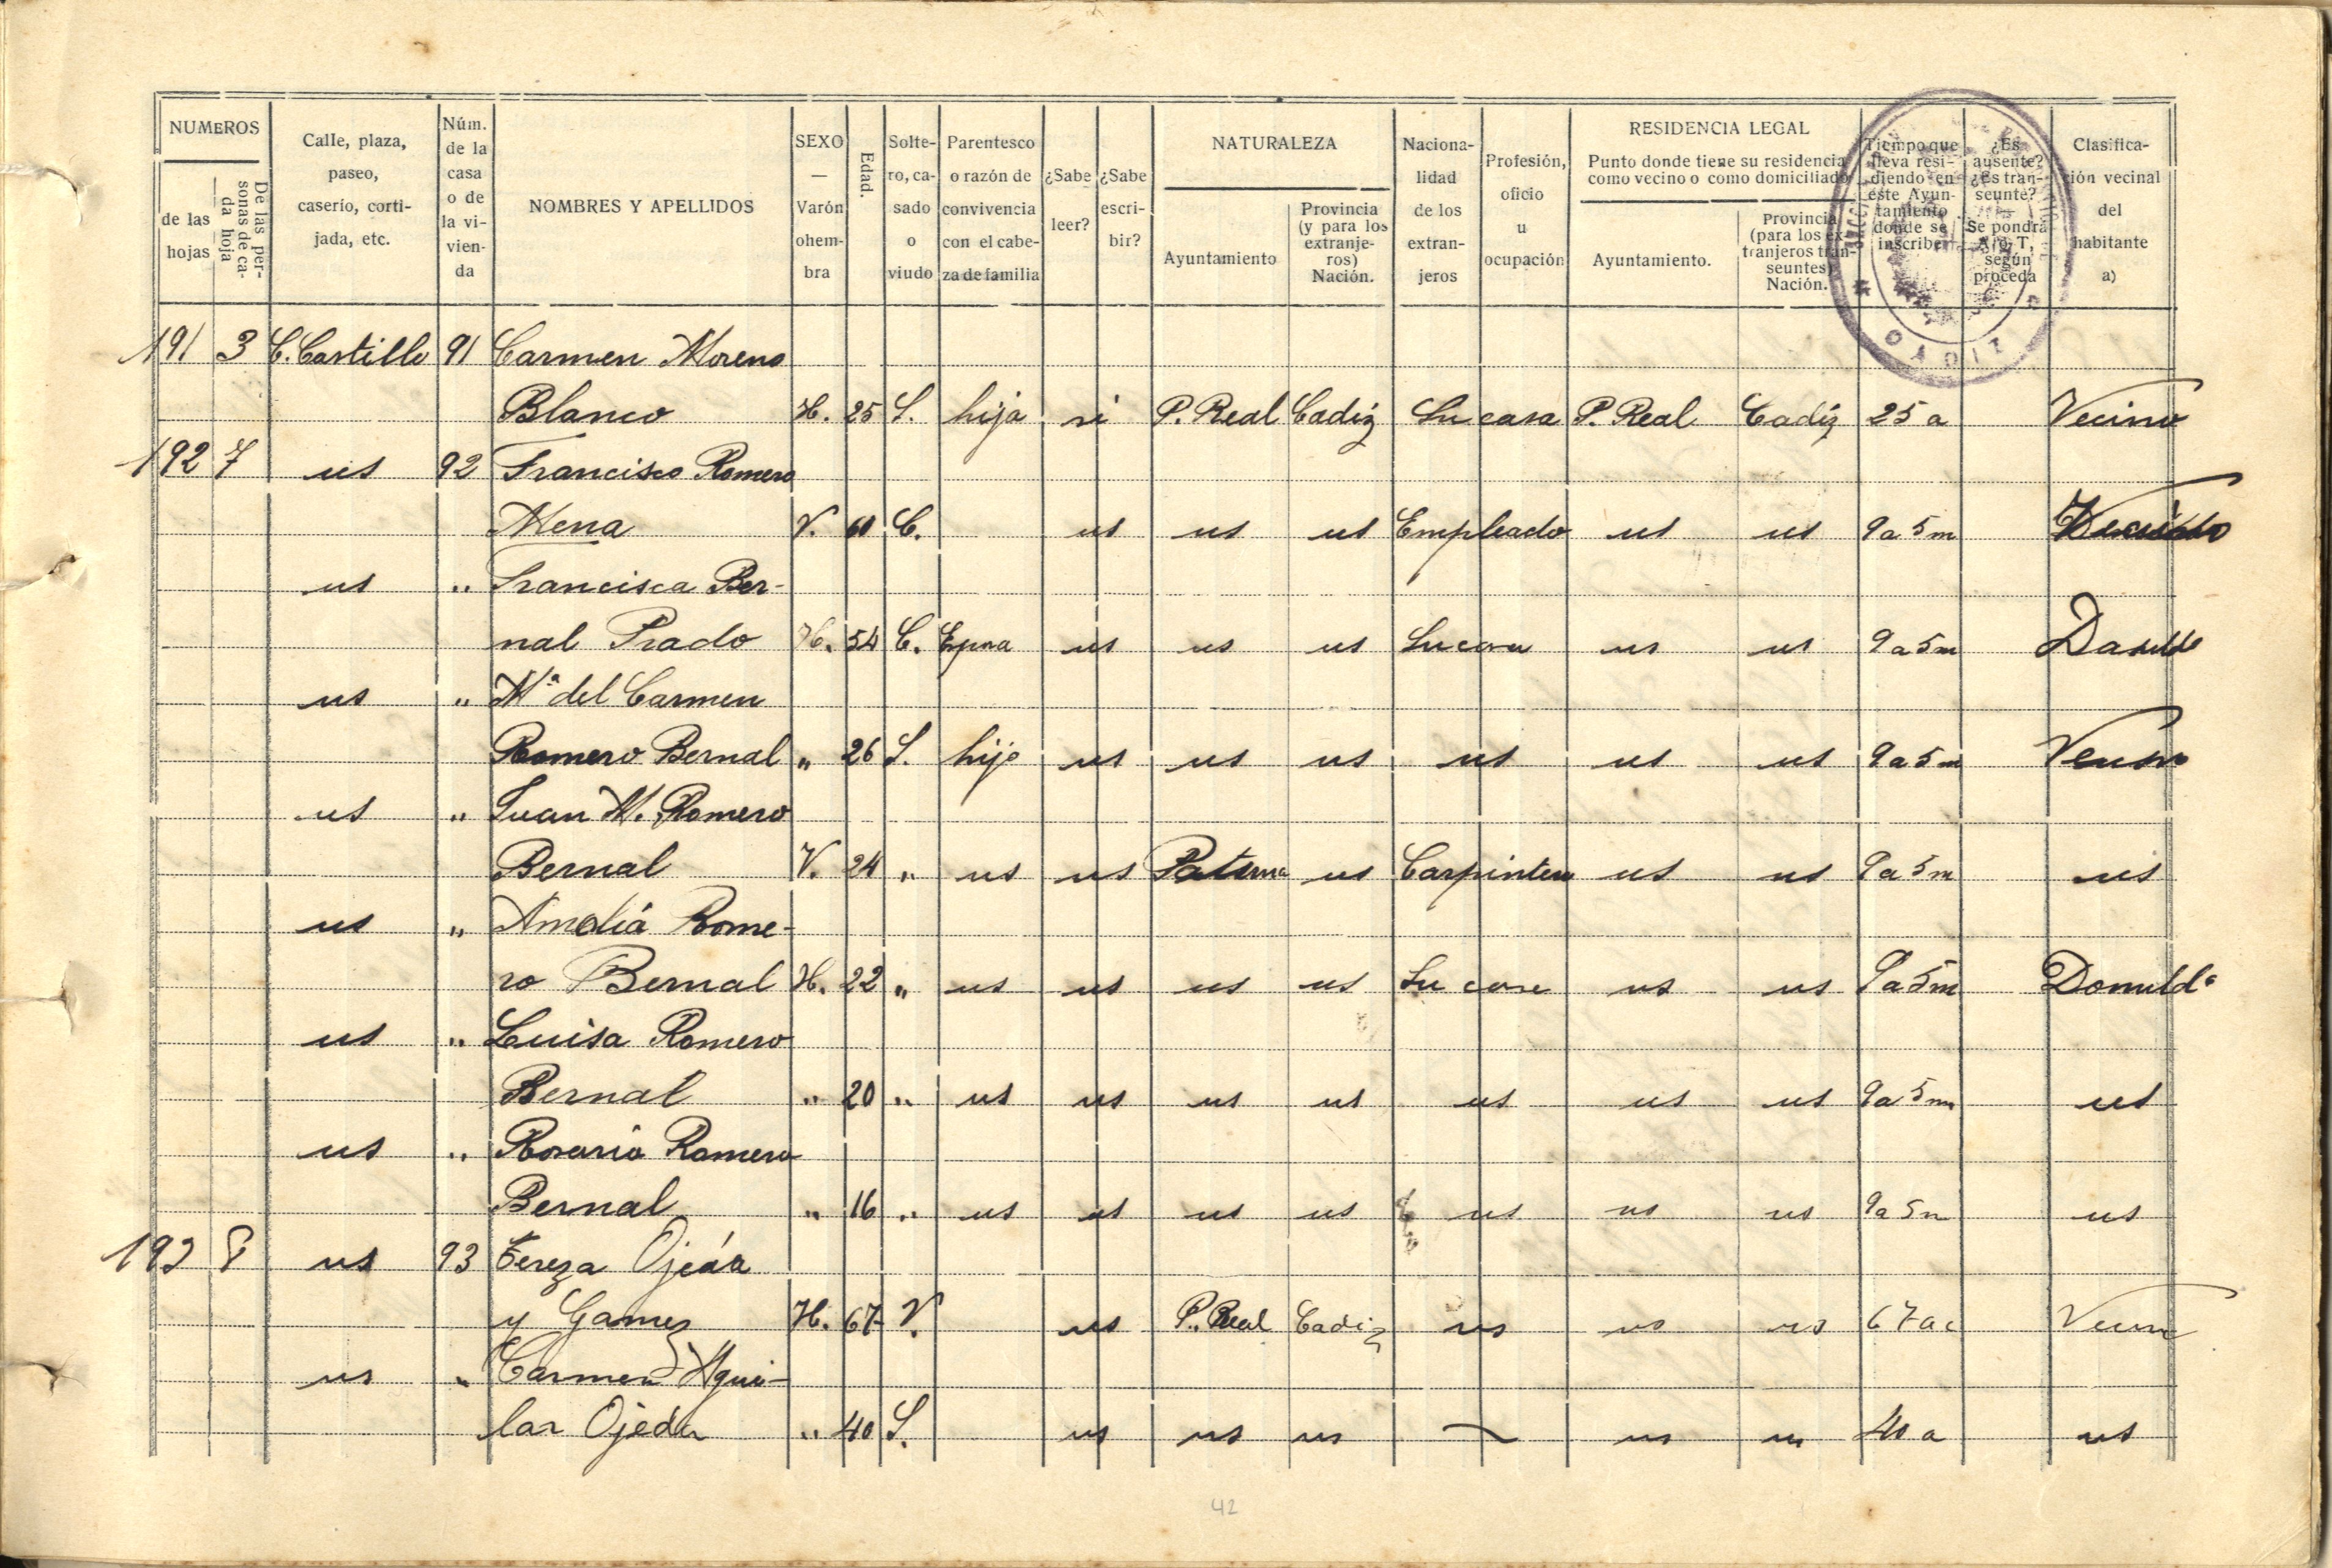 NUMEROS
de las hojas
De las personas de cada hoja
Calle, plaza, paseo, caserío, cortijada, etc.
Núm. de la casa o de la vivienda
NOMBRES Y APELLIDOS
SEXO — Varón o hembra
Edad.
Soltero, casado o viudo
Parentesco o razón de convivencia con el cabeza de familia
¿Sabe leer?
¿Sabe escribir?
NATURALEZA
Ayuntamiento
Provincia (y para los extranjeros) Nación.
Nacionalidad de los extranjeros
Profesión, oficio u ocupación
RESIDENCIA LEGAL
Punto donde tiene su residencia como vecino o como domiciliado
Ayuntamiento.
Provincia (para los extranjeros transeuntes) Nación.
Tiempo que lleva residiendo en este Ayuntamiento donde se inscribe
¿Es ausente? ¿Es transeunte? Se pondrá A, o T, según proceda
Clasificación vecinal del habitante a)
CADIZ
191 3 C. Castillo 91 Carmen Moreno
Blanco H. 25 S. hija si P. Real Cadiz Su casa P. Real Cadiz 25 a Vecino
192 7 us 92 Francisco Romero
Mena V. 60 C. us us us Empleado us us 9 a 5 m
us " Francisca Ber-
nal Prado H. 54 C. Esposa us us us Su casa us us 9 a 5 m
us " Mª del Carmen
Romero Bernal " 26 S. hijo us us us us us us 9 a 5 m Vecino
us " Juan M. Romero
Bernal V. 24 " us us Paterna us Carpintero us us 9 a 5 m us
us " Amelia Rome-
ro Bernal H. 22 " us us us us Su casa us us 9 a 5 m Domuldo
us " Luisa Romero
Bernal " 20 " us us us us us us us 9 a 5 m us
us " Rosario Romero
Bernal " 16 " us us us us us us us 9 a 5 m us
193 8 us 93 Tereza Ojeda
y Gamez H. 67 V. us P. Real Cadiz us us us 67 a Vecino
us " Carmen Agui-
lar Ojeda " 40 S. us us us us us 40 a us
42